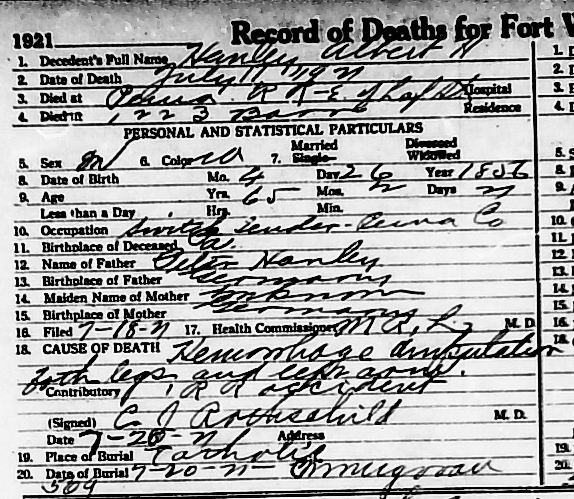 1921 Record of Deaths for Fort W
1. Decedent's Full Name Hanley Albert H
2. Date of Death July 17, 1921
3. Died at Penna. R R - E. of Laf St Hospital
4. Died in 1223 Residence
PERSONAL AND STATISTICAL PARTICULARS
5. Sex M 6. Color W 7. Married Single Divorced Widowed
8. Date of Birth Mo. 4 Day 26 Year 1856
9. Age Yrs. 65 Mos. 2 Days 21
Less than a Day Hrs. Min.
10. Occupation Switch Tender - Penna Co
11. Birthplace of Deceased Pa.
12. Name of Father Peter Hanley
13. Birthplace of Father Germany
14. Maiden Name of Mother Unknown
15. Birthplace of Mother Germany
16. Filed 7-18-21 17. Health Commissioner M. D.
18. CAUSE OF DEATH Hemorrhage Amputation
both legs and left arm.
Contributory R R accident
(Signed) C J Rothschild M. D.
Date 7-20-21 Address
19. Place of Burial Catholic
20. Date of Burial 7-20-21
509